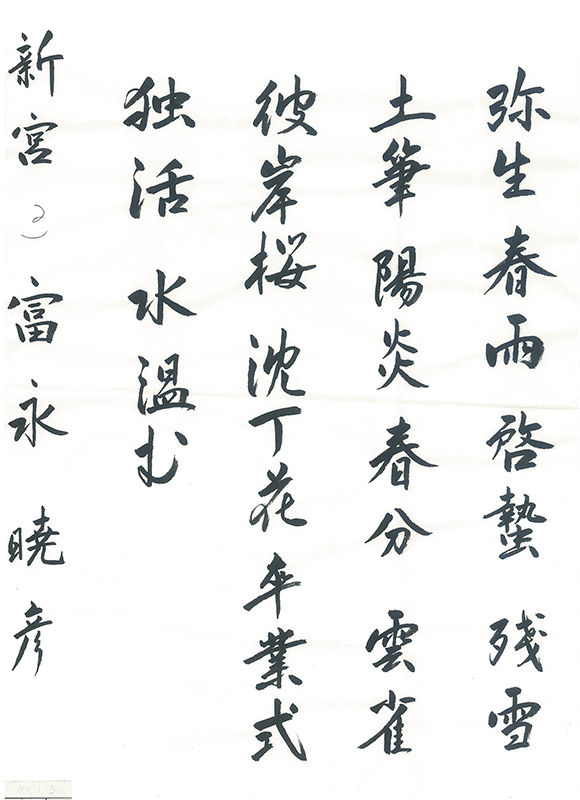 弥生 春雨 啓蟄 残雪
土筆 陽炎 春分 雲雀
彼岸桜 沈丁花 卒業式
独活 水温む
新宮 富永 暁彦